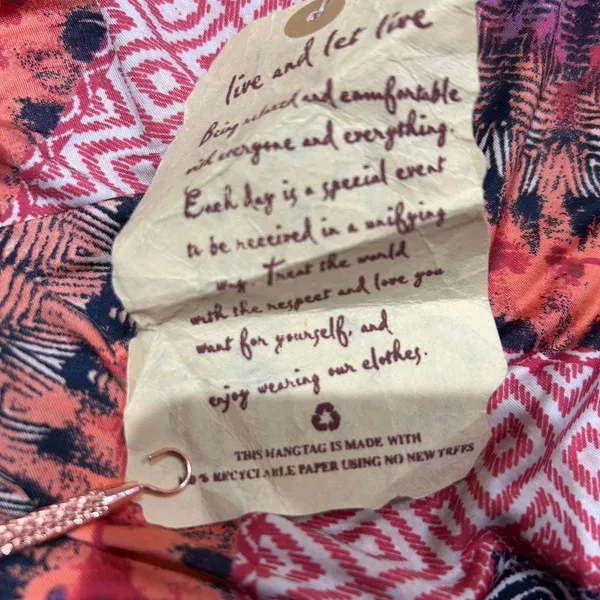 live and let live
Being relaxed and comfortable
with everyone and everything.
Each day is a special event
to be received in a unifying
way. Treat the world
with the respect and love you
want for yourself, and
enjoy wearing our clothes.
THIS HANGTAG IS MADE WITH
% RECYCLABLE PAPER USING NO NEW TREES